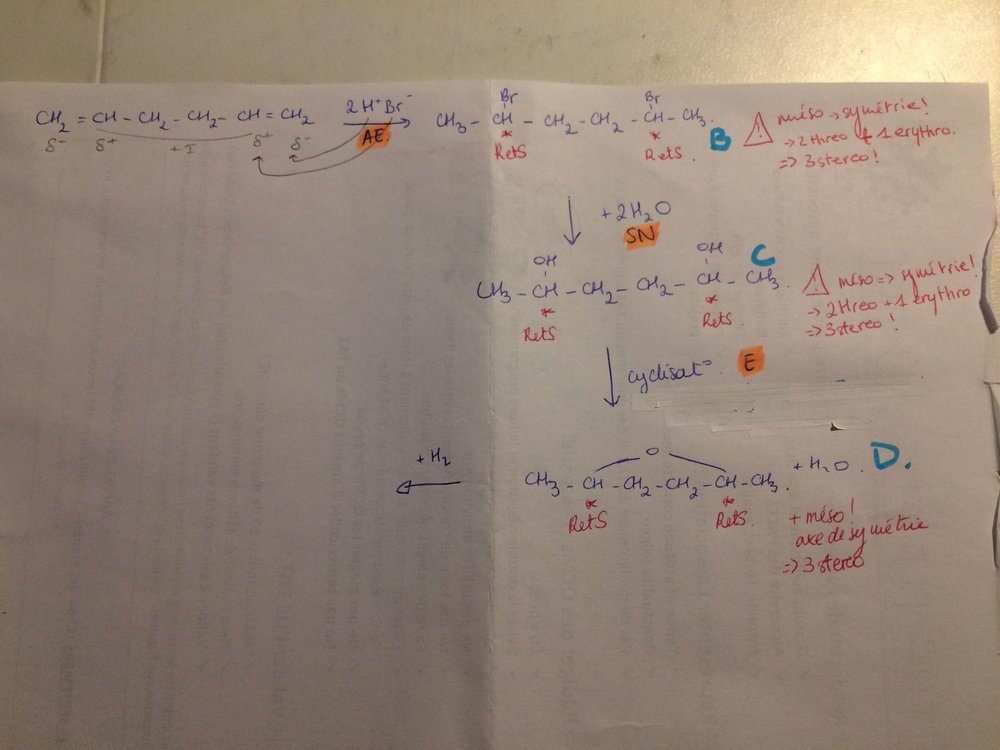 CH₂ = CH - CH₂ - CH₂ - CH = CH₂
δ⁻ δ⁺ +I δ⁺ δ⁻
2H⁺Br⁻
AE
Br Br
CH₃ - CH - CH₂ - CH₂ - CH - CH₃.
* *
RetS RetS.
B
⚠ méso → symétrie!
→ 2 threo + 1 erythro.
=> 3 stereo!
↓ + 2H₂O
SN
OH OH
CH₃ - CH - CH₂ - CH₂ - CH - CH₃.
* *
RetS RetS.
C
⚠ méso => symétrie!
→ 2 threo + 1 erythro
=> 3 stereo!
↓ cyclisat°. E
O
CH₃ - CH - CH₂ - CH₂ - CH - CH₃. + H₂O.
* *
RetS RetS.
D.
+ méso!
axe de symétrie
=> 3 stereo
+ H₂
←